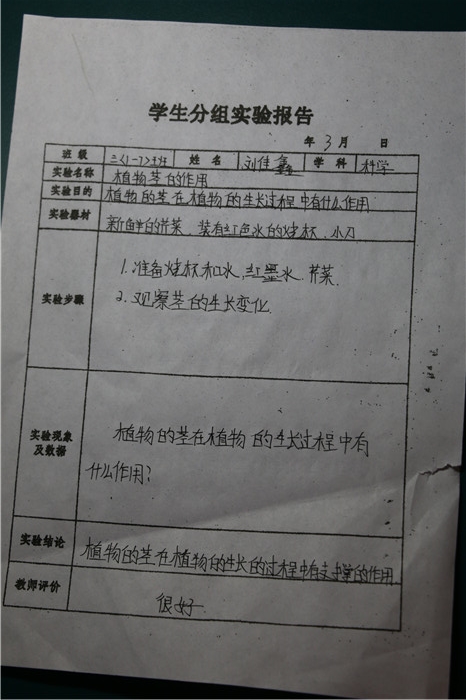 学生分组实验报告
年 3 月 日
班级 三(1-7)班 姓名 刘佳鑫 学科 科学
实验名称 植物茎的作用
实验目的 植物的茎在植物的生长过程中有什么作用
实验器材 新鲜的芹菜、装有红色水的烧杯、小刀
实验步骤
1.准备烧杯和水,红墨水.芹菜.
2.观察茎的生长变化.
实验现象及数据
植物的茎在植物的生长过程中有
什么作用?
实验结论 植物的茎在植物的生长的过程中有支撑的作用
教师评价 很好